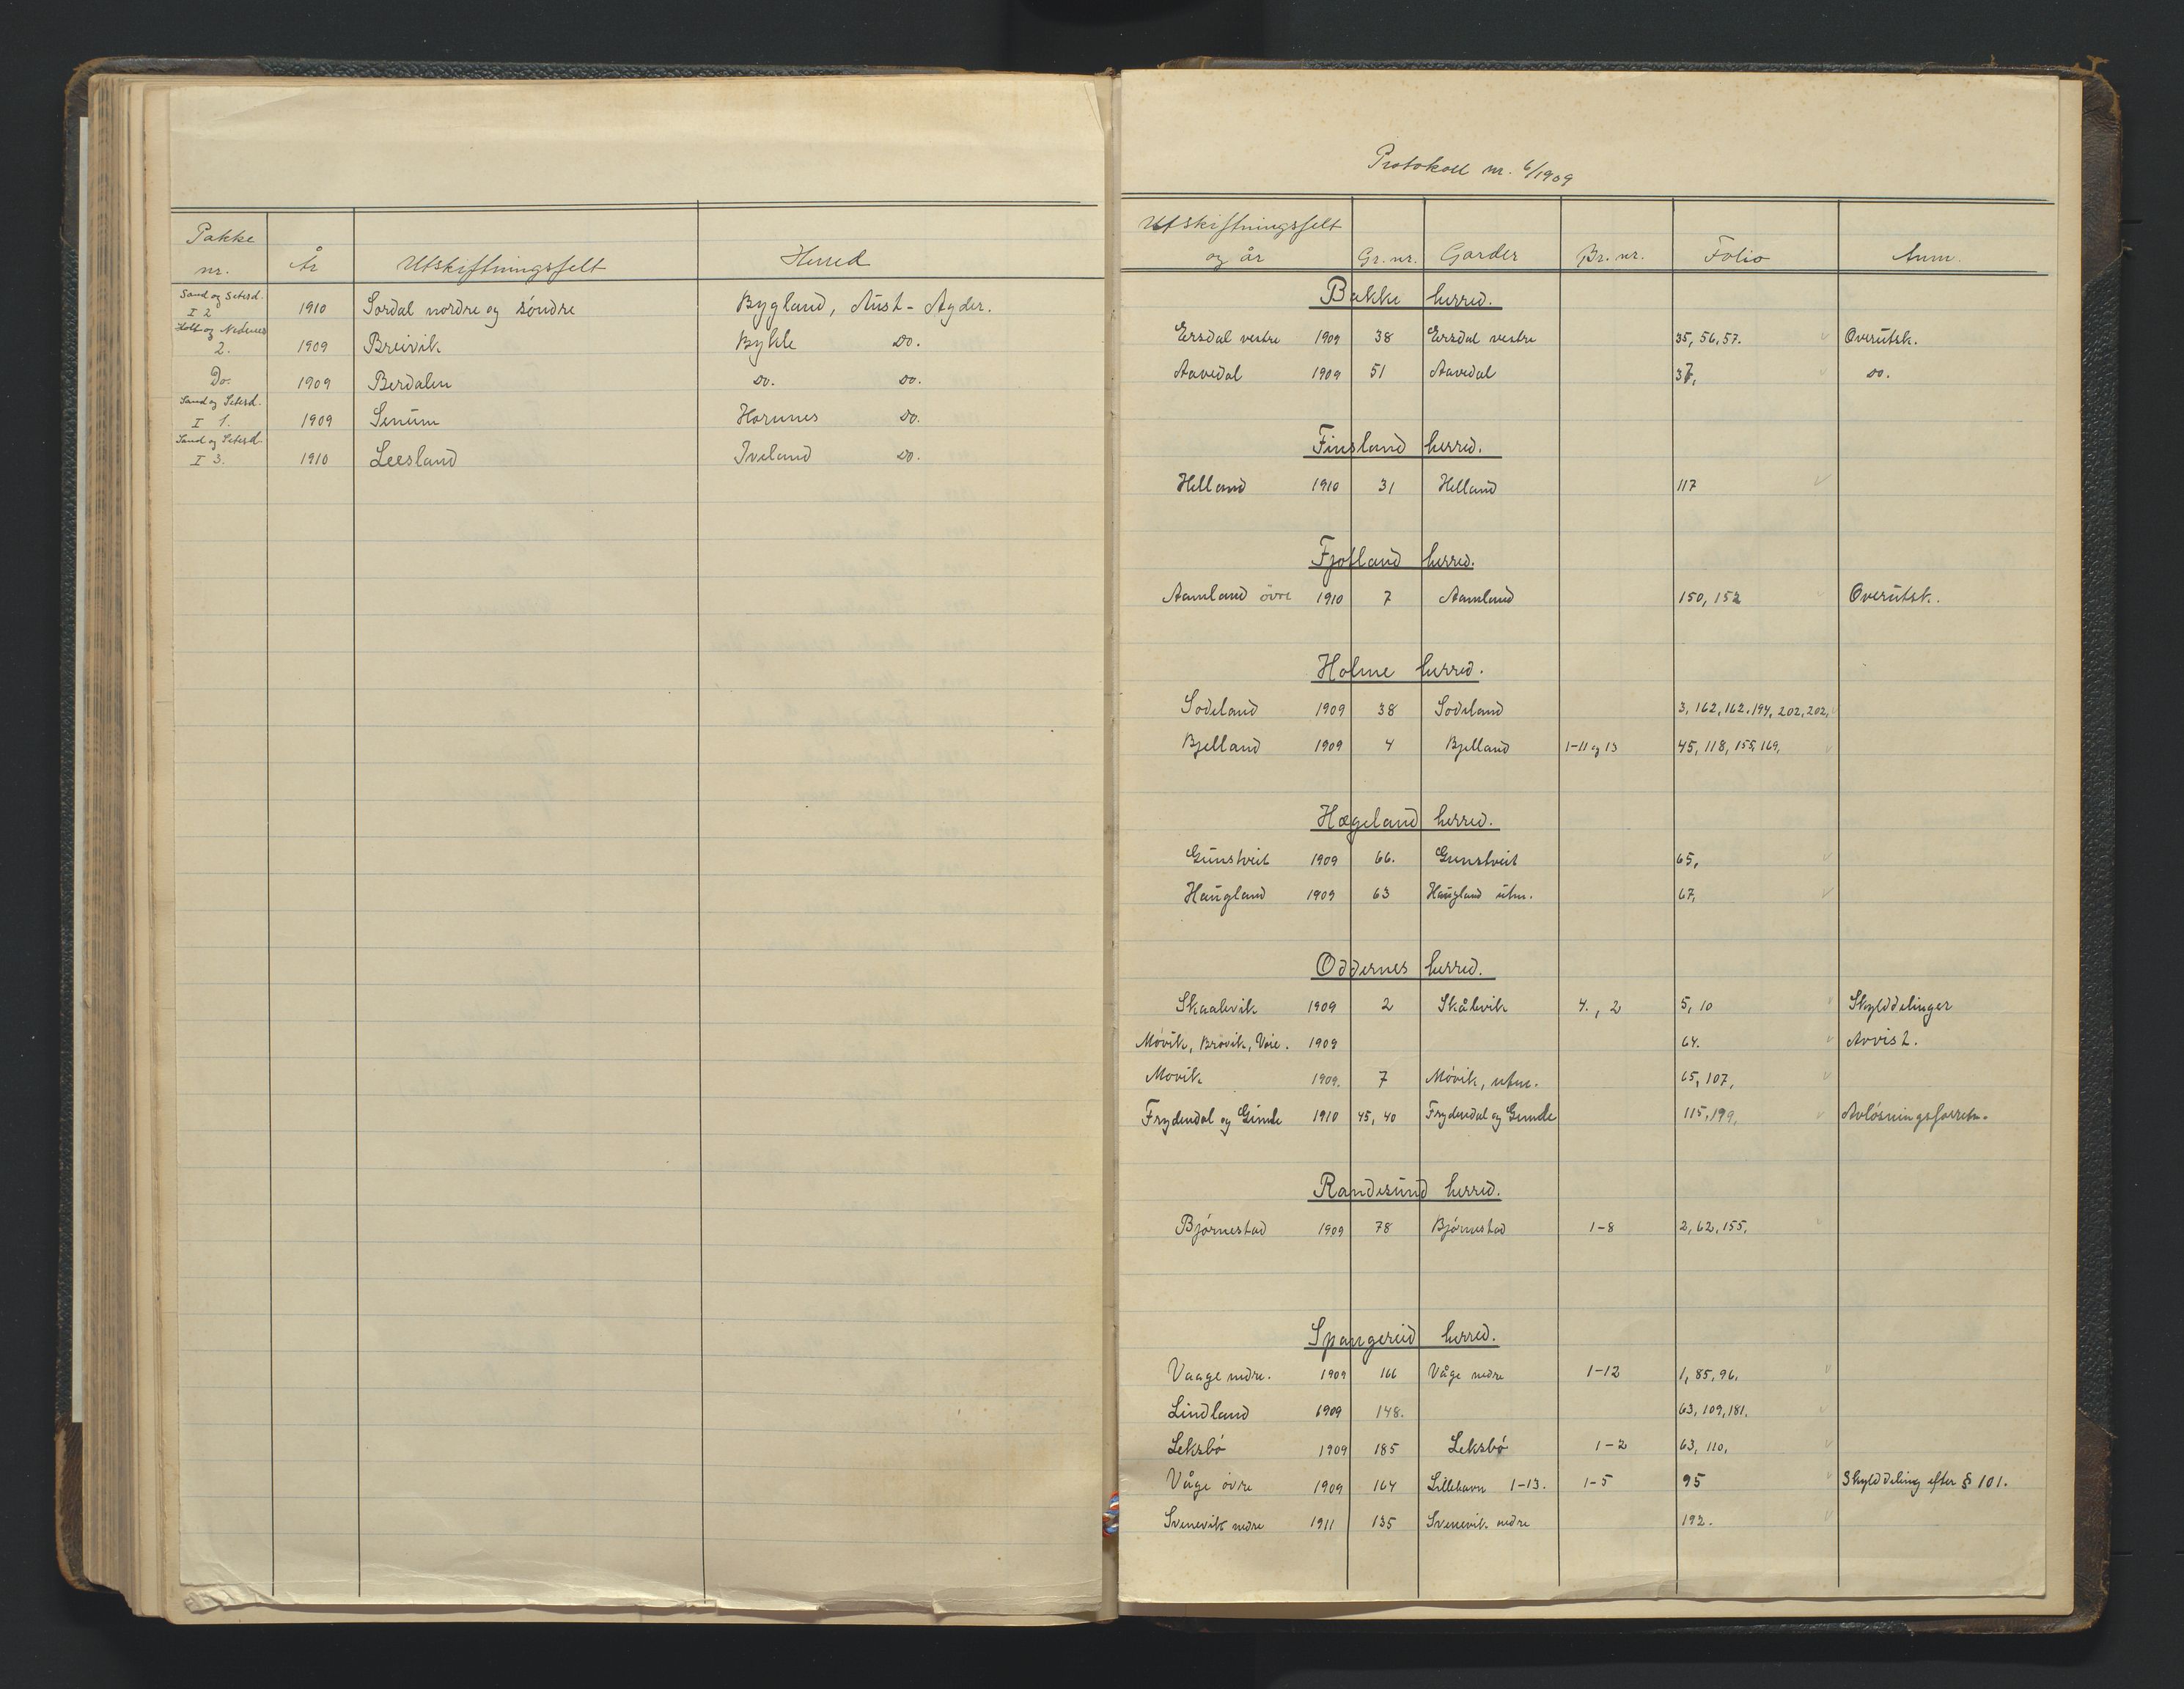 Pakke nr. År Utskiftningsfelt Herred
Sand og Setesd. I 2 1910 Sordal nordre og söndre Bygland, Aust-Agder.
Holt og Nedenes 2. 1909 Breivik Bykle Do.
Do. 1909 Berdalen Do. Do.
Sand og Setesd. I 1. 1909 Senum Hornnes Do.
Sand og Setesd. I 3. 1910 Leesland Iveland Do.
Protokoll nr. 6/1909
Utskiftningsfelt og år Gr. nr. Garder Br. nr. Folio Anm.
Bakke herred.
Ersdal vestre 1909 38 Ersdal vestre 35, 56, 57. Overutsk.
Aavedal 1909 51 Aavedal Do.
Finsland herred.
Helland 1910 31 Helland 117
Fjotland herred.
Aamland övre 1910 7 Aamland 150, 152 Overutsk.
Holme herred.
Sodeland 1909 38 Sodeland 3, 162, 162, 194, 202, 202,
Bjelland 1909 4 Bjelland 1-11 og 13 45, 118, 155, 169,
Hægeland herred.
Gunstveit 1909 66. Gunstveit 65,
Haugland 1909 63 Haugland utm. 67,
Oddernes herred.
Skaalevik 1909 2 Skålevik 4., 2 5, 10 Skylddelinger
Mövik, Brövik, Voie. 1909 64. Avvist.
Movik 1909. 7 Mövik, utm. 65, 107,
Frydendal og Gimle 1910 45, 40 Frydendal og Gimle 115, 199, Avlösningsforretn.
Randesund herred.
Björnestad 1909 78 Björnestad 1-8 2, 62, 155,
Spangereid herred.
Vaage nedre. 1909 166 Våge nedre 1-12 1, 85, 96,
Lindland 1909 148. 63, 109, 181,
Leksbö 1909 185 Leksbö 1-2 63, 110,
Våge övre 1909 164 Lillehavn 1-13. 1-5 95 Skylddeling efter § 101.
Svenevik nedre 1911 135 Svenevik nedre 192.